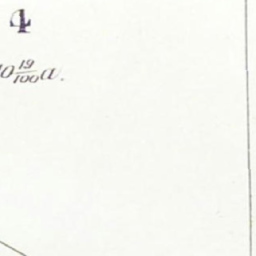 4
0 19/100 a.